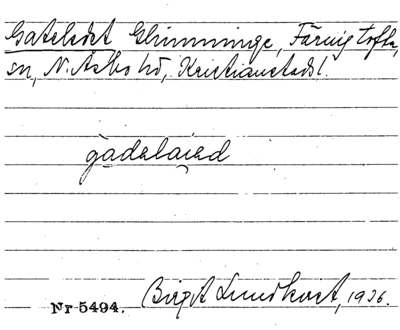 Gateledet Glimminge, Färingtofta
sn, N. Åsbo hd, Kristianstads l.
gadelaied
Nr 5494. Birgit Lundkvist, 1936.